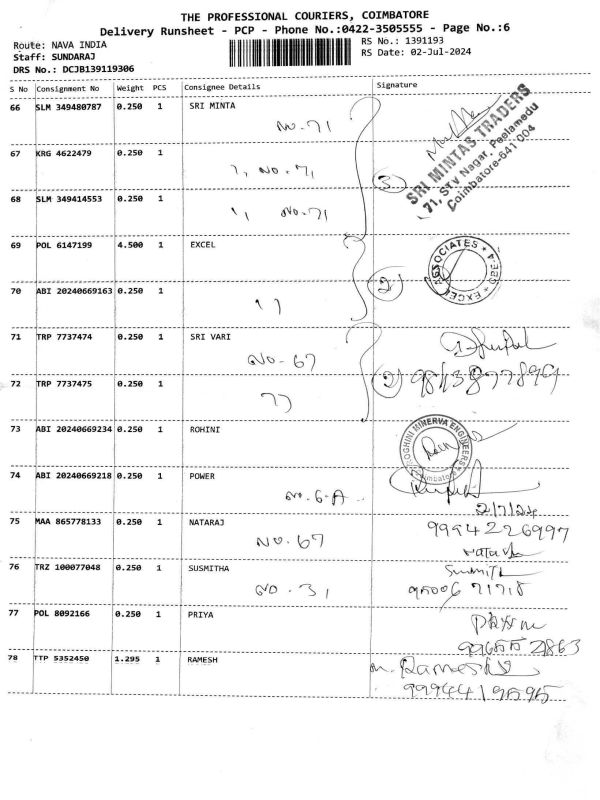 THE PROFESSIONAL COURIERS, COIMBATORE
Delivery Runsheet - PCP - Phone No.:0422-3505555 - Page No.:6
Route: NAVA INDIA
RS No.: 1391193
Staff: SUNDARAJ
RS Date: 02-Jul-2024
DRS No.: DCJB139119306
S No Consignment No Weight PCS Consignee Details Signature
66 SLM 349480787 0.250 1 SRI MINTA
No. 71
SRI MINTAS TRADERS
71, STV Nagar, Peelamedu
Coimbatore-641 004
67 KRG 4622479 0.250 1
No. 71
3
68 SLM 349414553 0.250 1
No. 71
69 POL 6147199 4.500 1 EXCEL
EXCEL ASSOCIATES
2
70 ABI 20240669163 0.250 1
71 TRP 7737474 0.250 1 SRI VARI
No. 67
72 TRP 7737475 0.250 1
2
73 ABI 20240669234 0.250 1 ROHINI
MINERVA ENGINEERS
Coimbatore
74 ABI 20240669218 0.250 1 POWER
No. 6-A
2/7/24
75 MAA 865778133 0.250 1 NATARAJ
No. 67
9994226997
76 TRZ 100077048 0.250 1 SUSMITHA
No. 31
77 POL 8092166 0.250 1 PRIYA
78 TTP 5352450 1.295 1 RAMESH